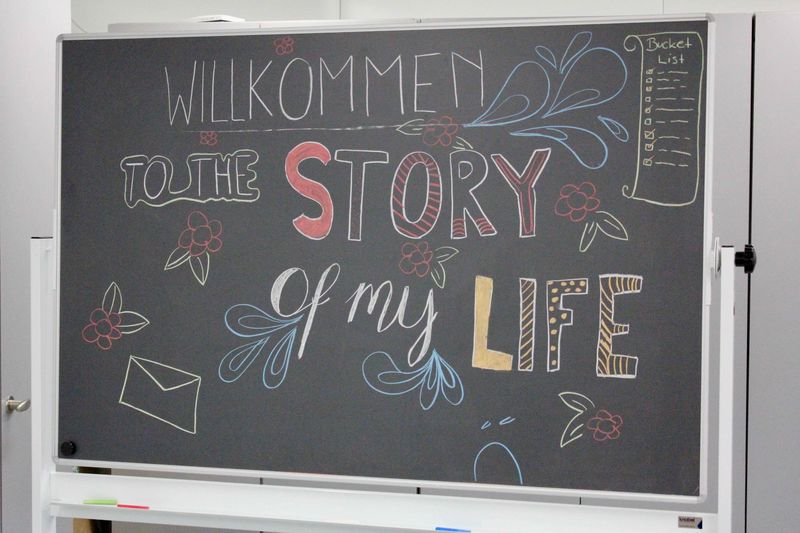 WILLKOMMEN
TO THE
STORY
Of my LIFE
Bucket
List